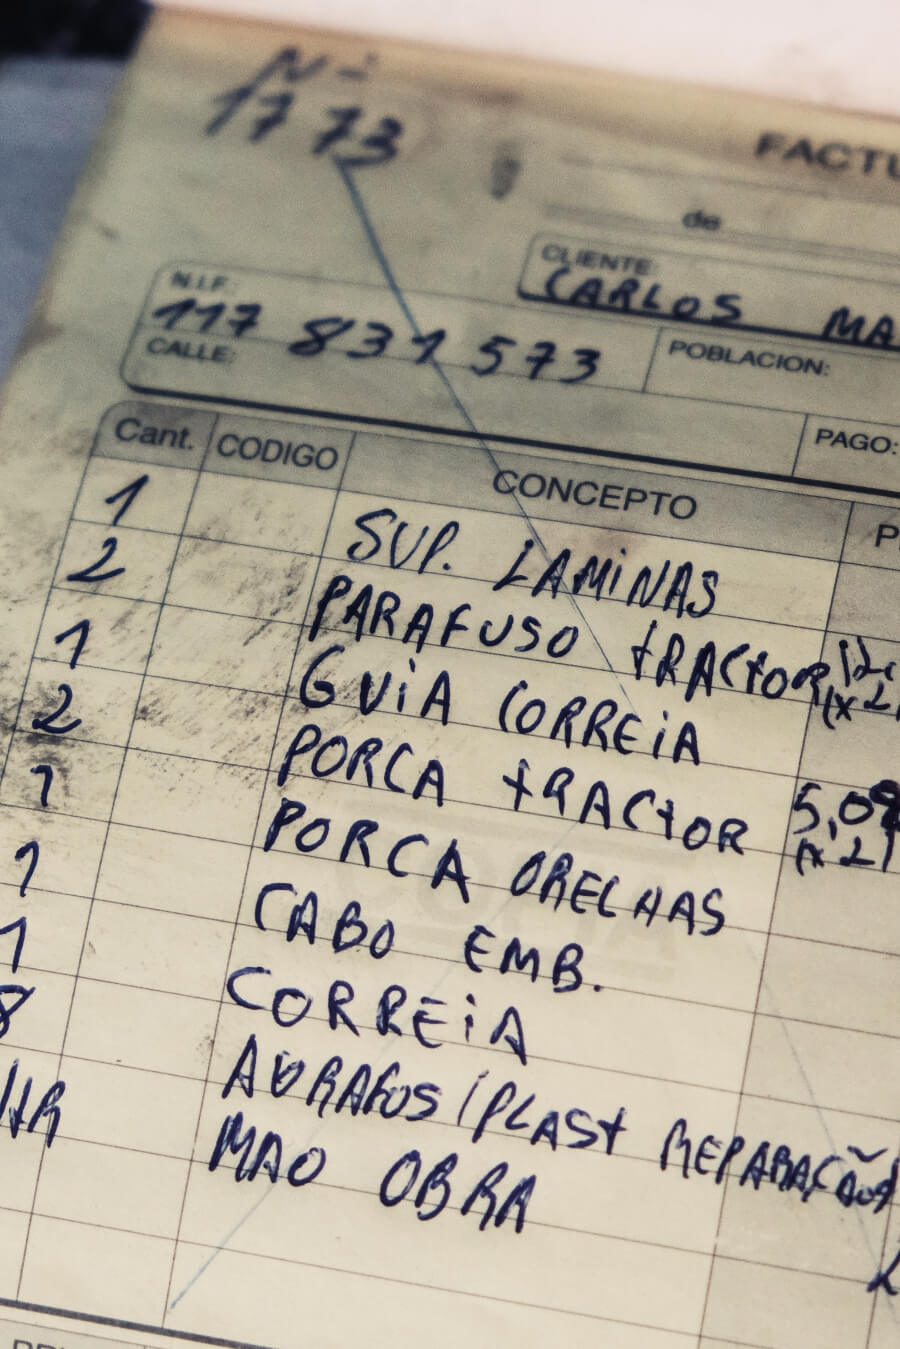 Nº
1773
FACTU
de
CLIENTE:
CARLOS MA
N.I.F.:
117 831 573
CALLE:
POBLACION:
PAGO:
Cant. CODIGO CONCEPTO P
1 SUP. LAMINAS
2 PARAFUSO TRACTOR
(x2)
1 GUIA CORREIA
2 PORCA TRACTOR 5,09
(x2)
1 PORCA ORELHAS
1 CABO EMB.
1 CORREIA
8 /PLAST REPARAÇÃO
HR MAO OBRA